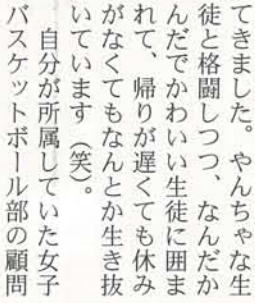 てきました。やんちゃな生
徒と格闘しつつ、なんだか
んだでかわいい生徒に囲ま
れて、帰りが遅くても休み
がなくてもなんとか生き抜
いています（笑）。
　自分が所属していた女子
バスケットボール部の顧問